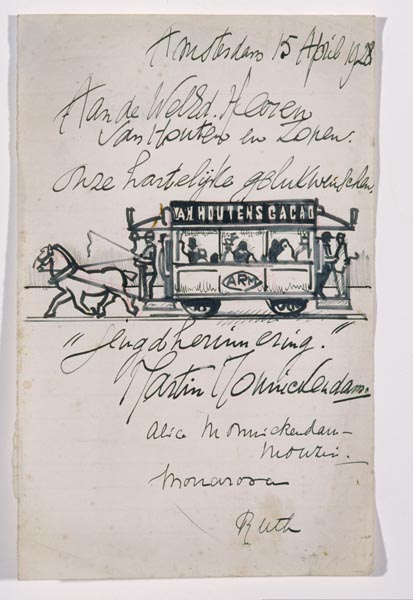 Amsterdam 15 April 1928
Aan de WelEd. Heeren
van Houten en Zonen.
onze hartelijke gelukwenschen.
VAN HOUTENS CACAO
ARM
"Jeugdherinnering."
Martin Monnickendam.
Alice Monnickendam-
Mouzin.
Monarosa
Ruth